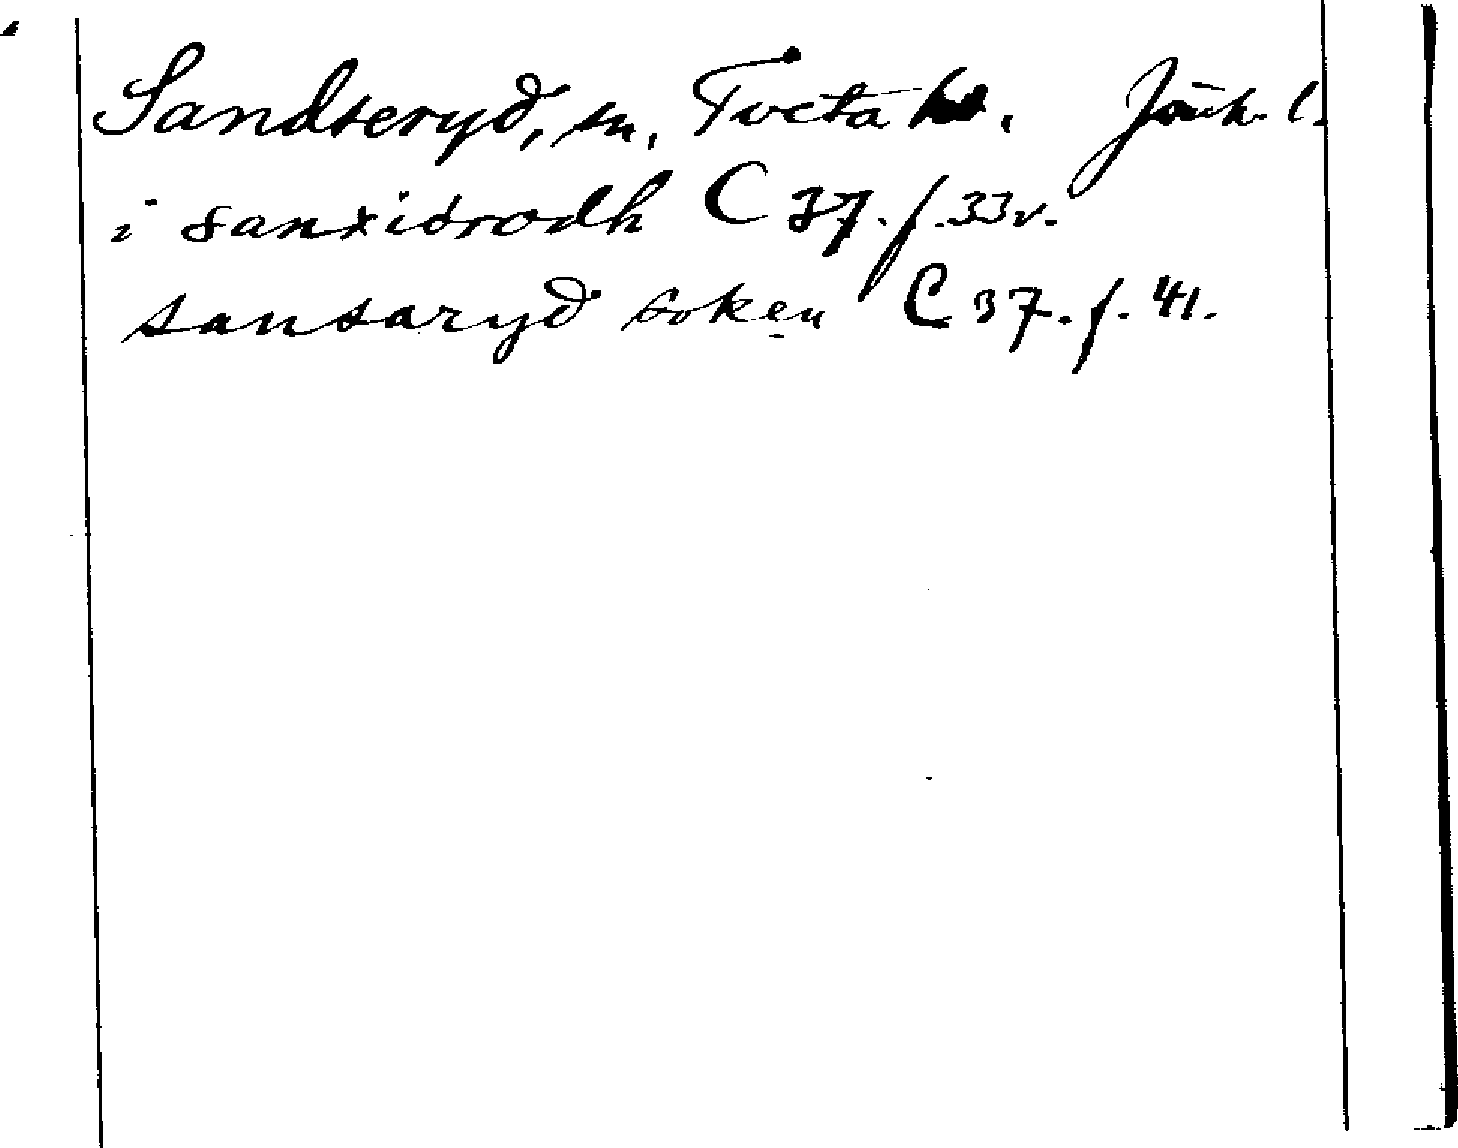 Sandseryd, sn, Tveta hd. Jönk. l.
i sanxidrodh C 37. f. 33 v.
sansaryd soken C 37. f. 41.